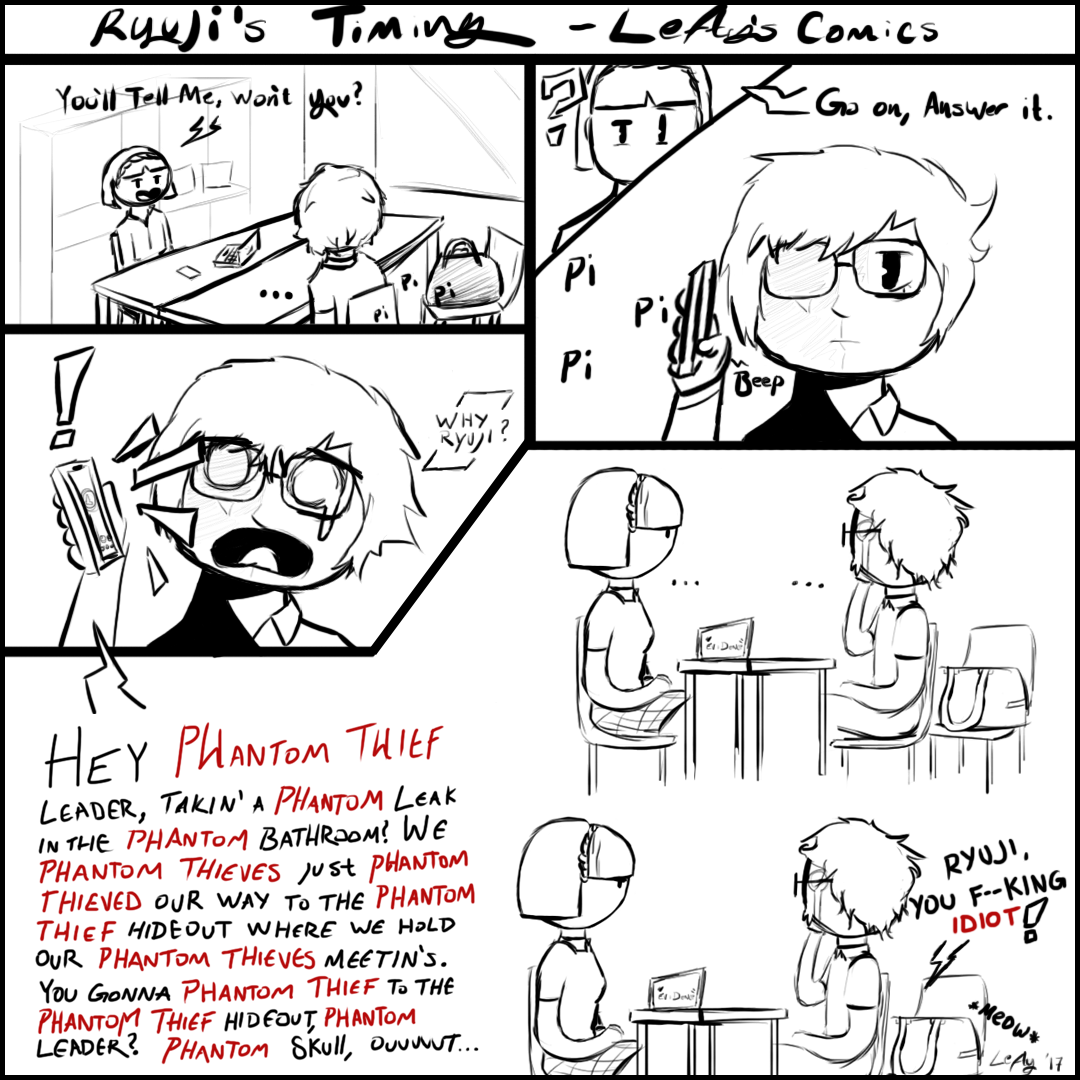 Ryuji's Timing - LeAy's Comics
You'll Tell Me, won't you?
...
Pi
Pi
Pi
?!
Go on, Answer it.
Pi
Pi
Pi
Beep
!
WHY
RYUJI?
HEY PHANTOM THIEF
LEADER, TAKIN' A PHANTOM LEAK
IN THE PHANTOM BATHROOM? WE
PHANTOM THIEVES JUST PHANTOM
THIEVED OUR WAY TO THE PHANTOM
THIEF HIDEOUT WHERE WE HOLD
OUR PHANTOM THIEVES MEETIN'S.
YOU GONNA PHANTOM THIEF TO THE
PHANTOM THIEF HIDEOUT, PHANTOM
LEADER? PHANTOM SKULL, OUUUUT...
... ...
RYUJI,
YOU F--KING
IDIOT!
*MEOW*
LeAy '17